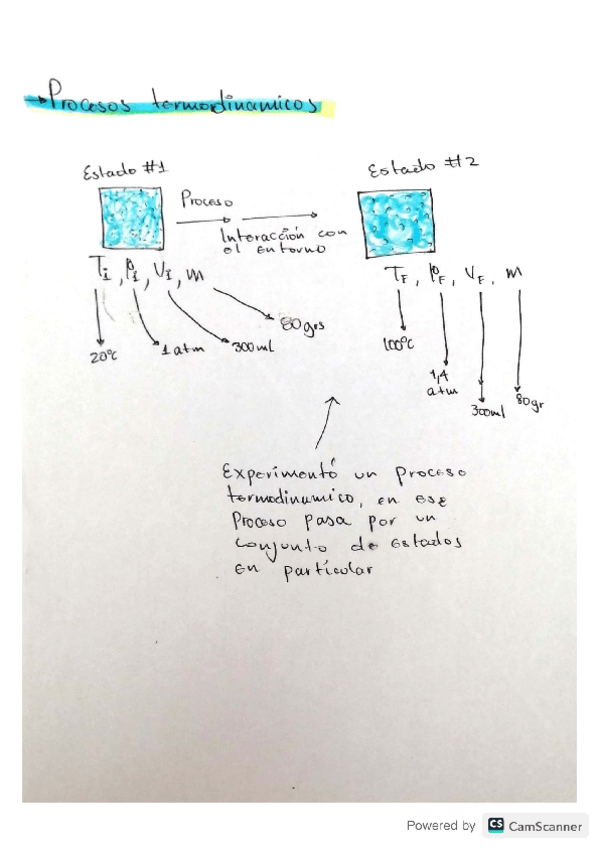 →Procesos termodinamicos
Estado #1
Estado #2
Proceso
Interacción con
el entorno
Ti, Pi, Vi, m
TF, PF, VF, m
20°c
1 atm
300ml
80grs
100°c
1,4
atm
300ml
80gr
Experimentó un proceso
termodinamico, en ese
Proceso pasa por un
conjunto de estados
en particular
Powered by CS CamScanner